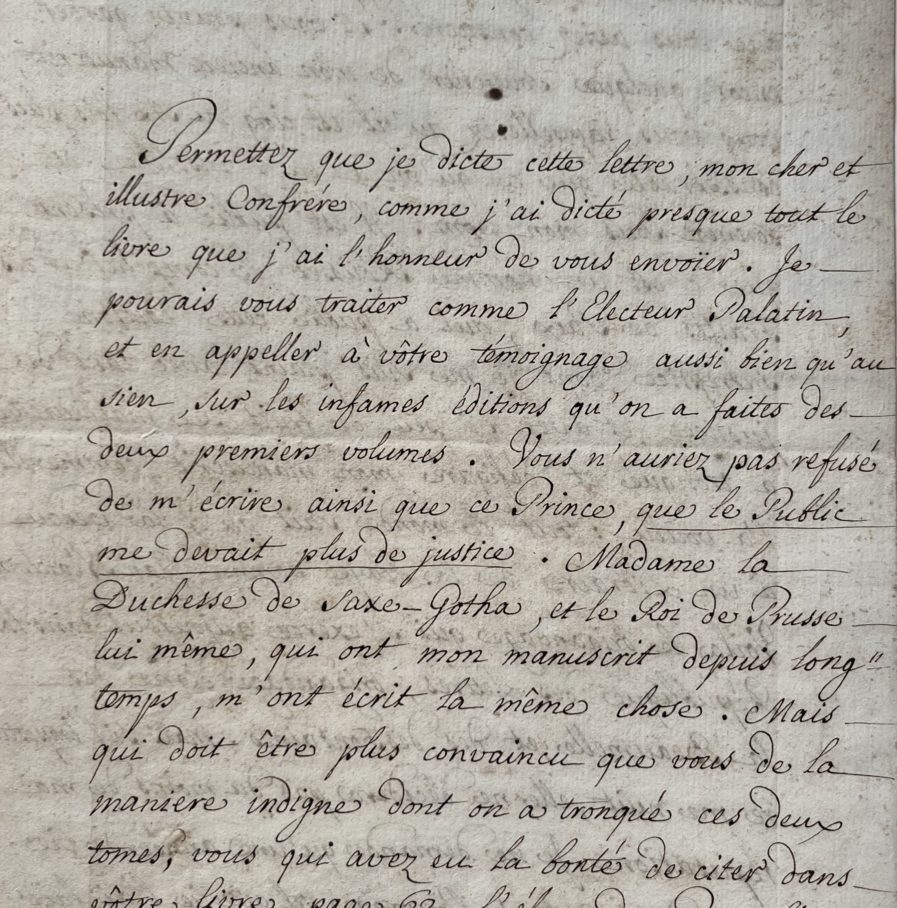 Permettez que je dicte cette lettre, mon cher et
illustre Confrére, comme j'ai dicté presque tout le
livre que j'ai l'honneur de vous envoïer. Je
pourais vous traiter comme l'Electeur Palatin,
et en appeller à vôtre témoignage aussi bien qu'au
sien, sur les infames éditions qu'on a faites des
deux premiers volumes. Vous n'auriez pas refusé
de m'écrire ainsi que ce Prince, que le Public
me devait plus de justice. Madame la
Duchesse de Saxe-Gotha, et le Roi de Prusse
lui même, qui ont mon manuscrit depuis long"
temps, m'ont écrit la même chose. Mais
qui doit être plus convaincu que vous de la
maniere indigne dont on a tronqué ces deux
tomes, vous qui avez eu la bonté de citer dans
vôtre livre page